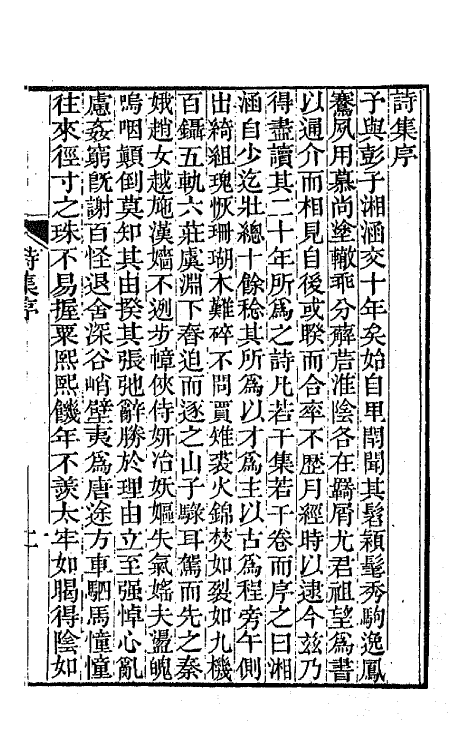 詩集序
子與彭子湘涵交十年矣始自里閈聞其髫穎髦秀駒逸鳳
鶱夙用慕尚塗轍乖分薢茩淮陰各在韉屑尤君祖望為書
以通介而相見自後或暌而合率不歷月經時以逮今茲乃
得盡讀其二十年所為之詩凡若干集若干卷而序之曰湘
涵自少迄壯總十餘稔其所為以才為主以古為程旁午側
出綺組瑰恢珊瑚木難碎不問賈雉裘火錦焚如裂如九機
百鑷五軌六莊虞淵下舂迫而逐之山子騄耳駕而先之秦
娥趙女越施漢嬙不迾步幛俠侍妍冶妖嫗失氣媱夫蘯魄
嗚咽顛倒莫知其由揆其張弛辭勝於理由立至强悼心亂
慮姦窮旣謝百怪退舍深谷峭壁夷為唐途方車駟馬憧憧
往來徑寸之珠不易握粟熙熙饑年不羨太牢如暍得陰如
詩集序
一